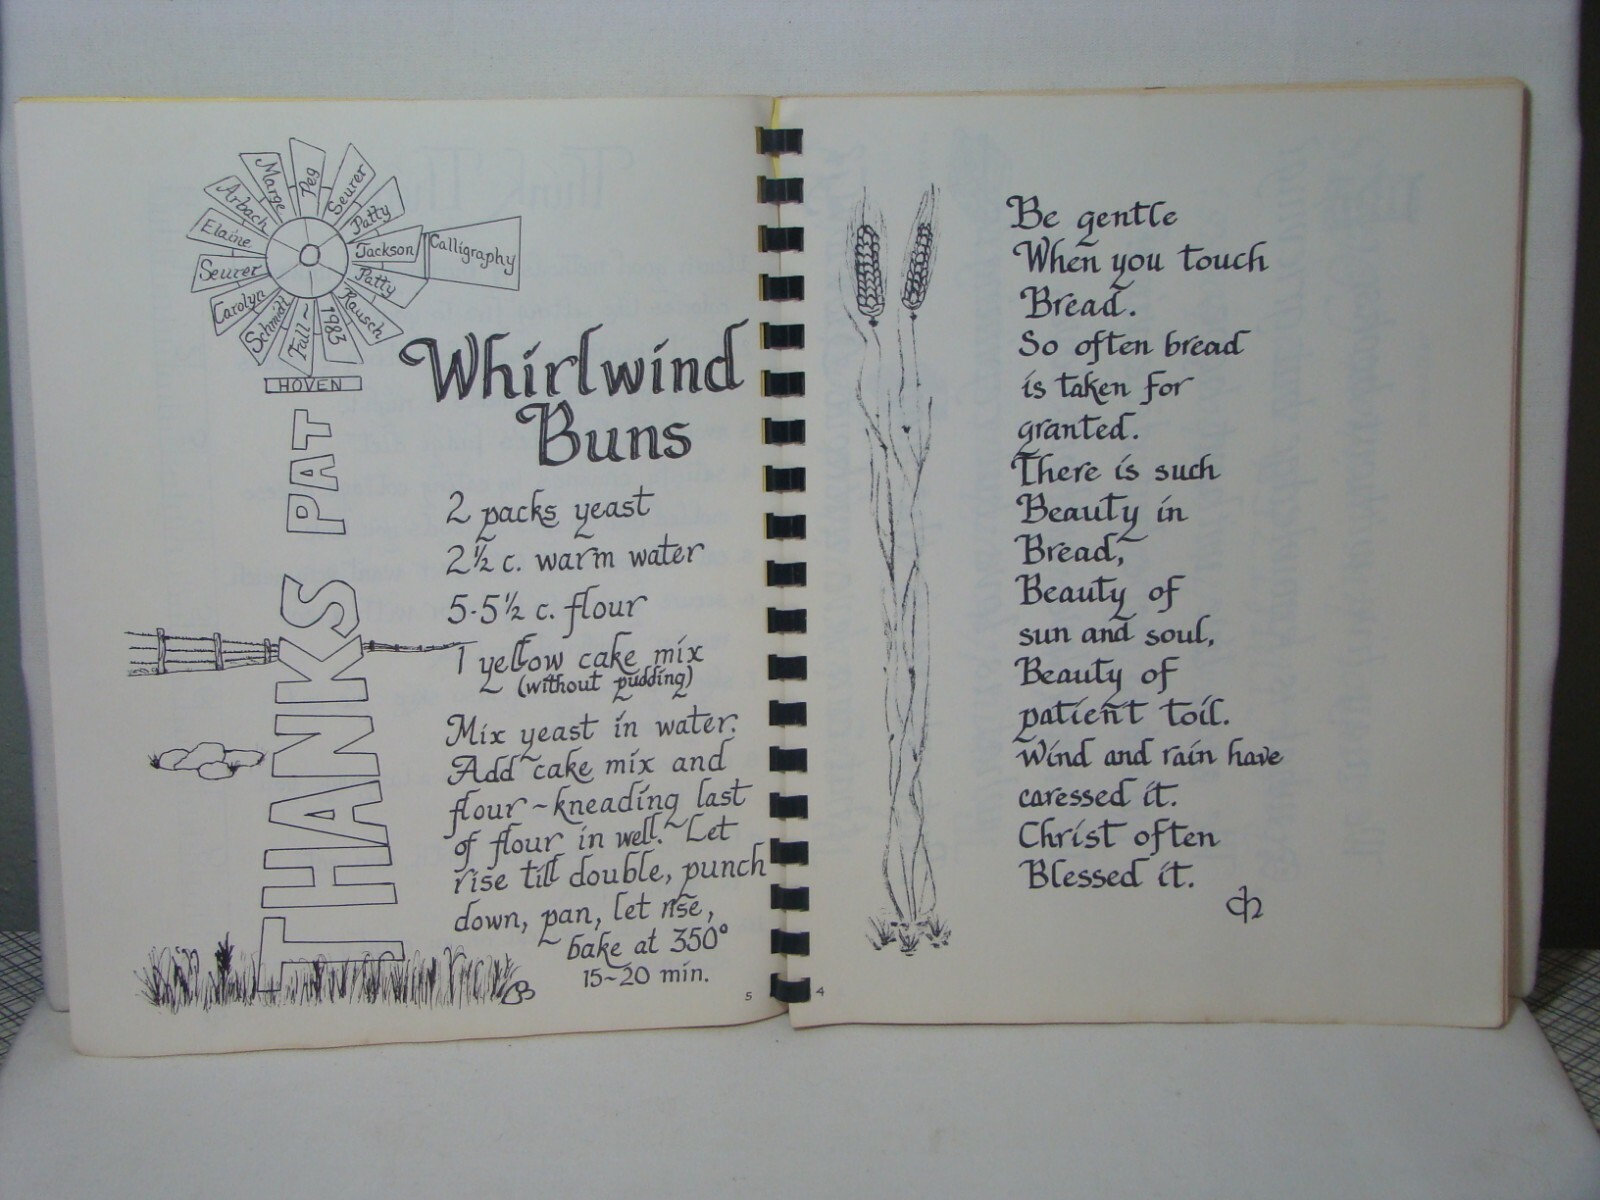 Peg
Seurer
Patty
Jackson
Patty
Rausch
1983
Fall~
Schmidt
Carolyn
Seurer
Elaine
Arbach
Marge
Calligraphy
HOVEN
THANKS PAT
Whirlwind
Buns
2 packs yeast
2½ c. warm water
5-5½ c. flour
1 yellow cake mix
(without pudding)
Mix yeast in water.
Add cake mix and
flour~kneading last
of flour in well. Let
rise till double, punch
down, pan, let rise,
bake at 350°
15~20 min.
5
Be gentle
When you touch
Bread.
So often bread
is taken for
granted.
There is such
Beauty in
Bread,
Beauty of
sun and soul,
Beauty of
patient toil.
Wind and rain have
caressed it.
Christ often
Blessed it.
4